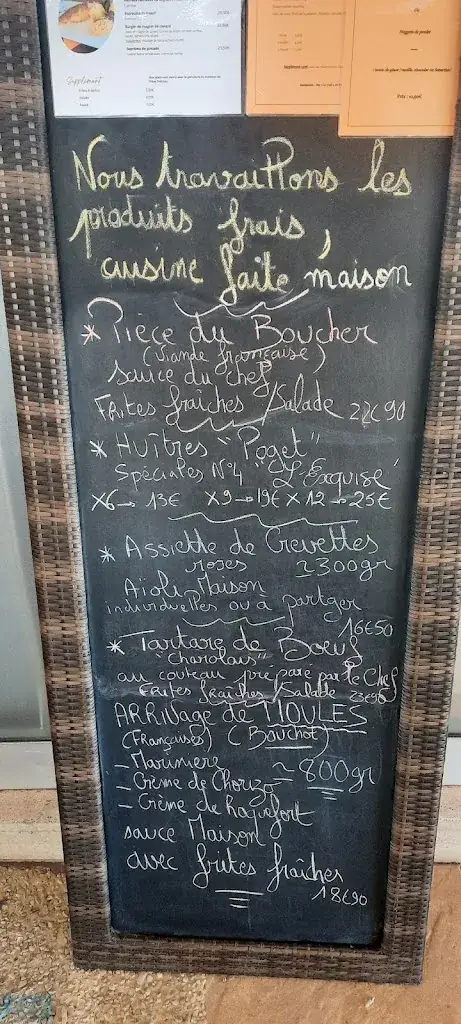 Supplément
Nous travaillons les
produits frais,
cuisine faite maison
* Pièce du Boucher
(viande française)
sauce du chef
Frites fraîches / Salade 22€90
* Huîtres "Poget"
Spéciales N°4 "L'Exquise"
X6 → 13€ X9 → 19€ X 12 → 25€
* Assiette de Crevettes
roses ≃300gr
Aïoli Maison
individuelles ou à partger
16€50
* Tartare de Boeuf
"Charolais"
au couteau préparé par le Chef
frites fraîches / Salade 23€90
ARRIVAGE de MOULES
(Françaises) (Bouchot)
- Marinière
≃ 800gr
- Crème de Chorizo
- Crème de Roquefort
sauce Maison
avec frites fraîches
18€90